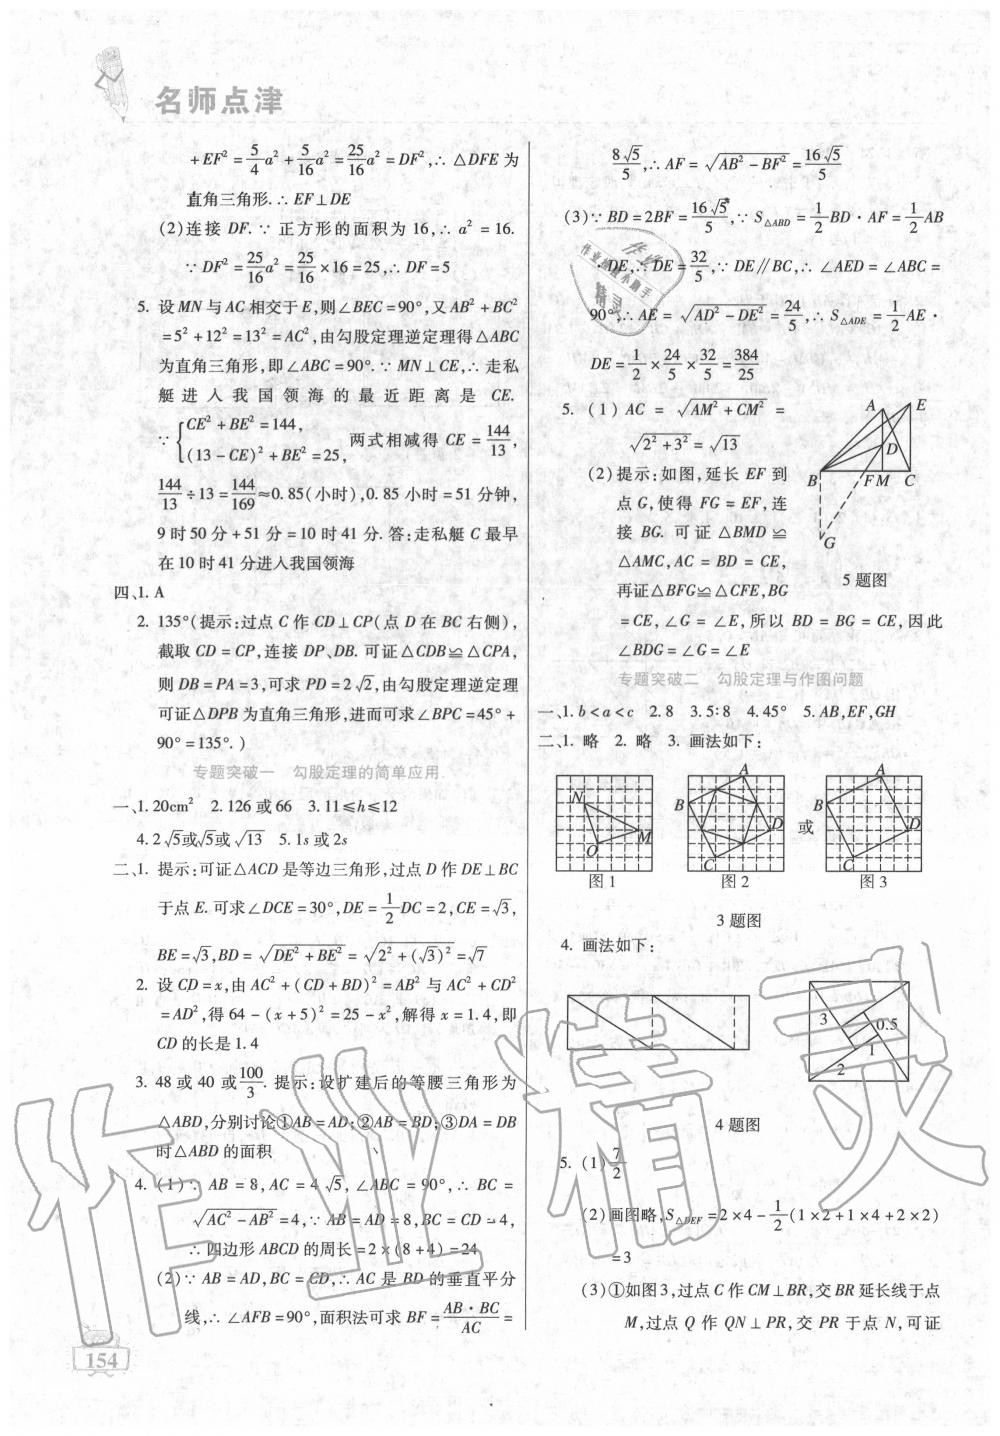 名师点津
+EF²=5/4a²+5/16a²=25/16a²=DF²,∴△DFE为
直角三角形.∴EF⊥DE
(2)连接DF.∵正方形的面积为16,∴a²=16.
∵DF²=25/16a²=25/16×16=25,∴DF=5
5. 设MN与AC相交于E,则∠BEC=90°,又AB²+BC²
=5²+12²=13²=AC²,由勾股定理逆定理得△ABC
为直角三角形,即∠ABC=90°.∵MN⊥CE,∴走私
艇进入我国领海的最近距离是CE.
∵{CE²+BE²=144,
(13-CE)²+BE²=25,
两式相减得CE=144/13,
144/13÷13=144/169≈0.85(小时),0.85小时=51分钟,
9时50分+51分=10时41分.答:走私艇C最早
在10时41分进入我国领海
四、1. A
2. 135°(提示:过点C作CD⊥CP(点D在BC右侧),
截取CD=CP,连接DP、DB.可证△CDB≌△CPA,
则DB=PA=3,可求PD=2√2,由勾股定理逆定理
可证△DPB为直角三角形,进而可求∠BPC=45°+
90°=135°.)
专题突破一 勾股定理的简单应用
一、1. 20cm² 2. 126或66 3. 11≤h≤12
4. 2√5或√5或√13 5. 1s或2s
二、1. 提示:可证△ACD是等边三角形,过点D作DE⊥BC
于点E.可求∠DCE=30°,DE=1/2DC=2,CE=√3,
BE=√3,BD=√(DE²+BE²)=√(2²+(√3)²)=√7
2. 设CD=x,由AC²+(CD+BD)²=AB²与AC²+CD²
=AD²,得64-(x+5)²=25-x²,解得x=1.4,即
CD的长是1.4
3. 48或40或100/3.提示:设扩建后的等腰三角形为
△ABD,分别讨论①AB=AD;②AB=BD;③DA=DB
时△ABD的面积
4. (1)∵AB=8,AC=4√5,∠ABC=90°,∴BC=
√(AC²-AB²)=4,∵AB=AD=8,BC=CD=4,
∴四边形ABCD的周长=2×(8+4)=24
(2)∵AB=AD,BC=CD,∴AC是BD的垂直平分
线,∴∠AFB=90°,面积法可求BF=AB·BC/AC=
154
8√5/5,∴AF=√(AB²-BF²)=16√5/5
(3)∵BD=2BF=16√5/5,∵S△ABD=1/2BD·AF=1/2AB
·DE,∴DE=32/5,∵DE∥BC,∴∠AED=∠ABC=
90°,∴AE=√(AD²-DE²)=24/5,∴S△ADE=1/2AE·
DE=1/2×24/5×32/5=384/25
5. (1)AC=√(AM²+CM²)=
√(2²+3²)=√13
(2)提示:如图,延长EF到
点G,使得FG=EF,连
接BG.可证△BMD≌
△AMC,AC=BD=CE,
再证△BFG≌△CFE,BG
=CE,∠G=∠E,所以BD=BG=CE,因此
∠BDG=∠G=∠E
A E
D
B F M C
G
5题图
专题突破二 勾股定理与作图问题
一、1. b<a<c 2. 8 3. 5∶8 4. 45° 5. AB,EF,GH
二、1. 略 2. 略 3. 画法如下:
N M O
图1
A B D C
图2
或
A B D C
图3
3题图
4. 画法如下:
3 0.5 1 2
4题图
5. (1)7/2
(2)画图略,S△DEF=2×4-1/2(1×2+1×4+2×2)
=3
(3)①如图3,过点C作CM⊥BR,交BR延长线于点
M,过点Q作QN⊥PR,交PR于点N,可证
作业精灵